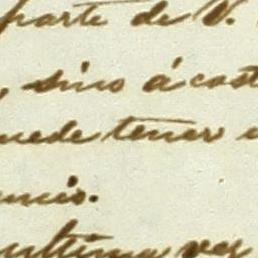 parte de V.
, sino á cost
uede tener
encio.
ultima vez